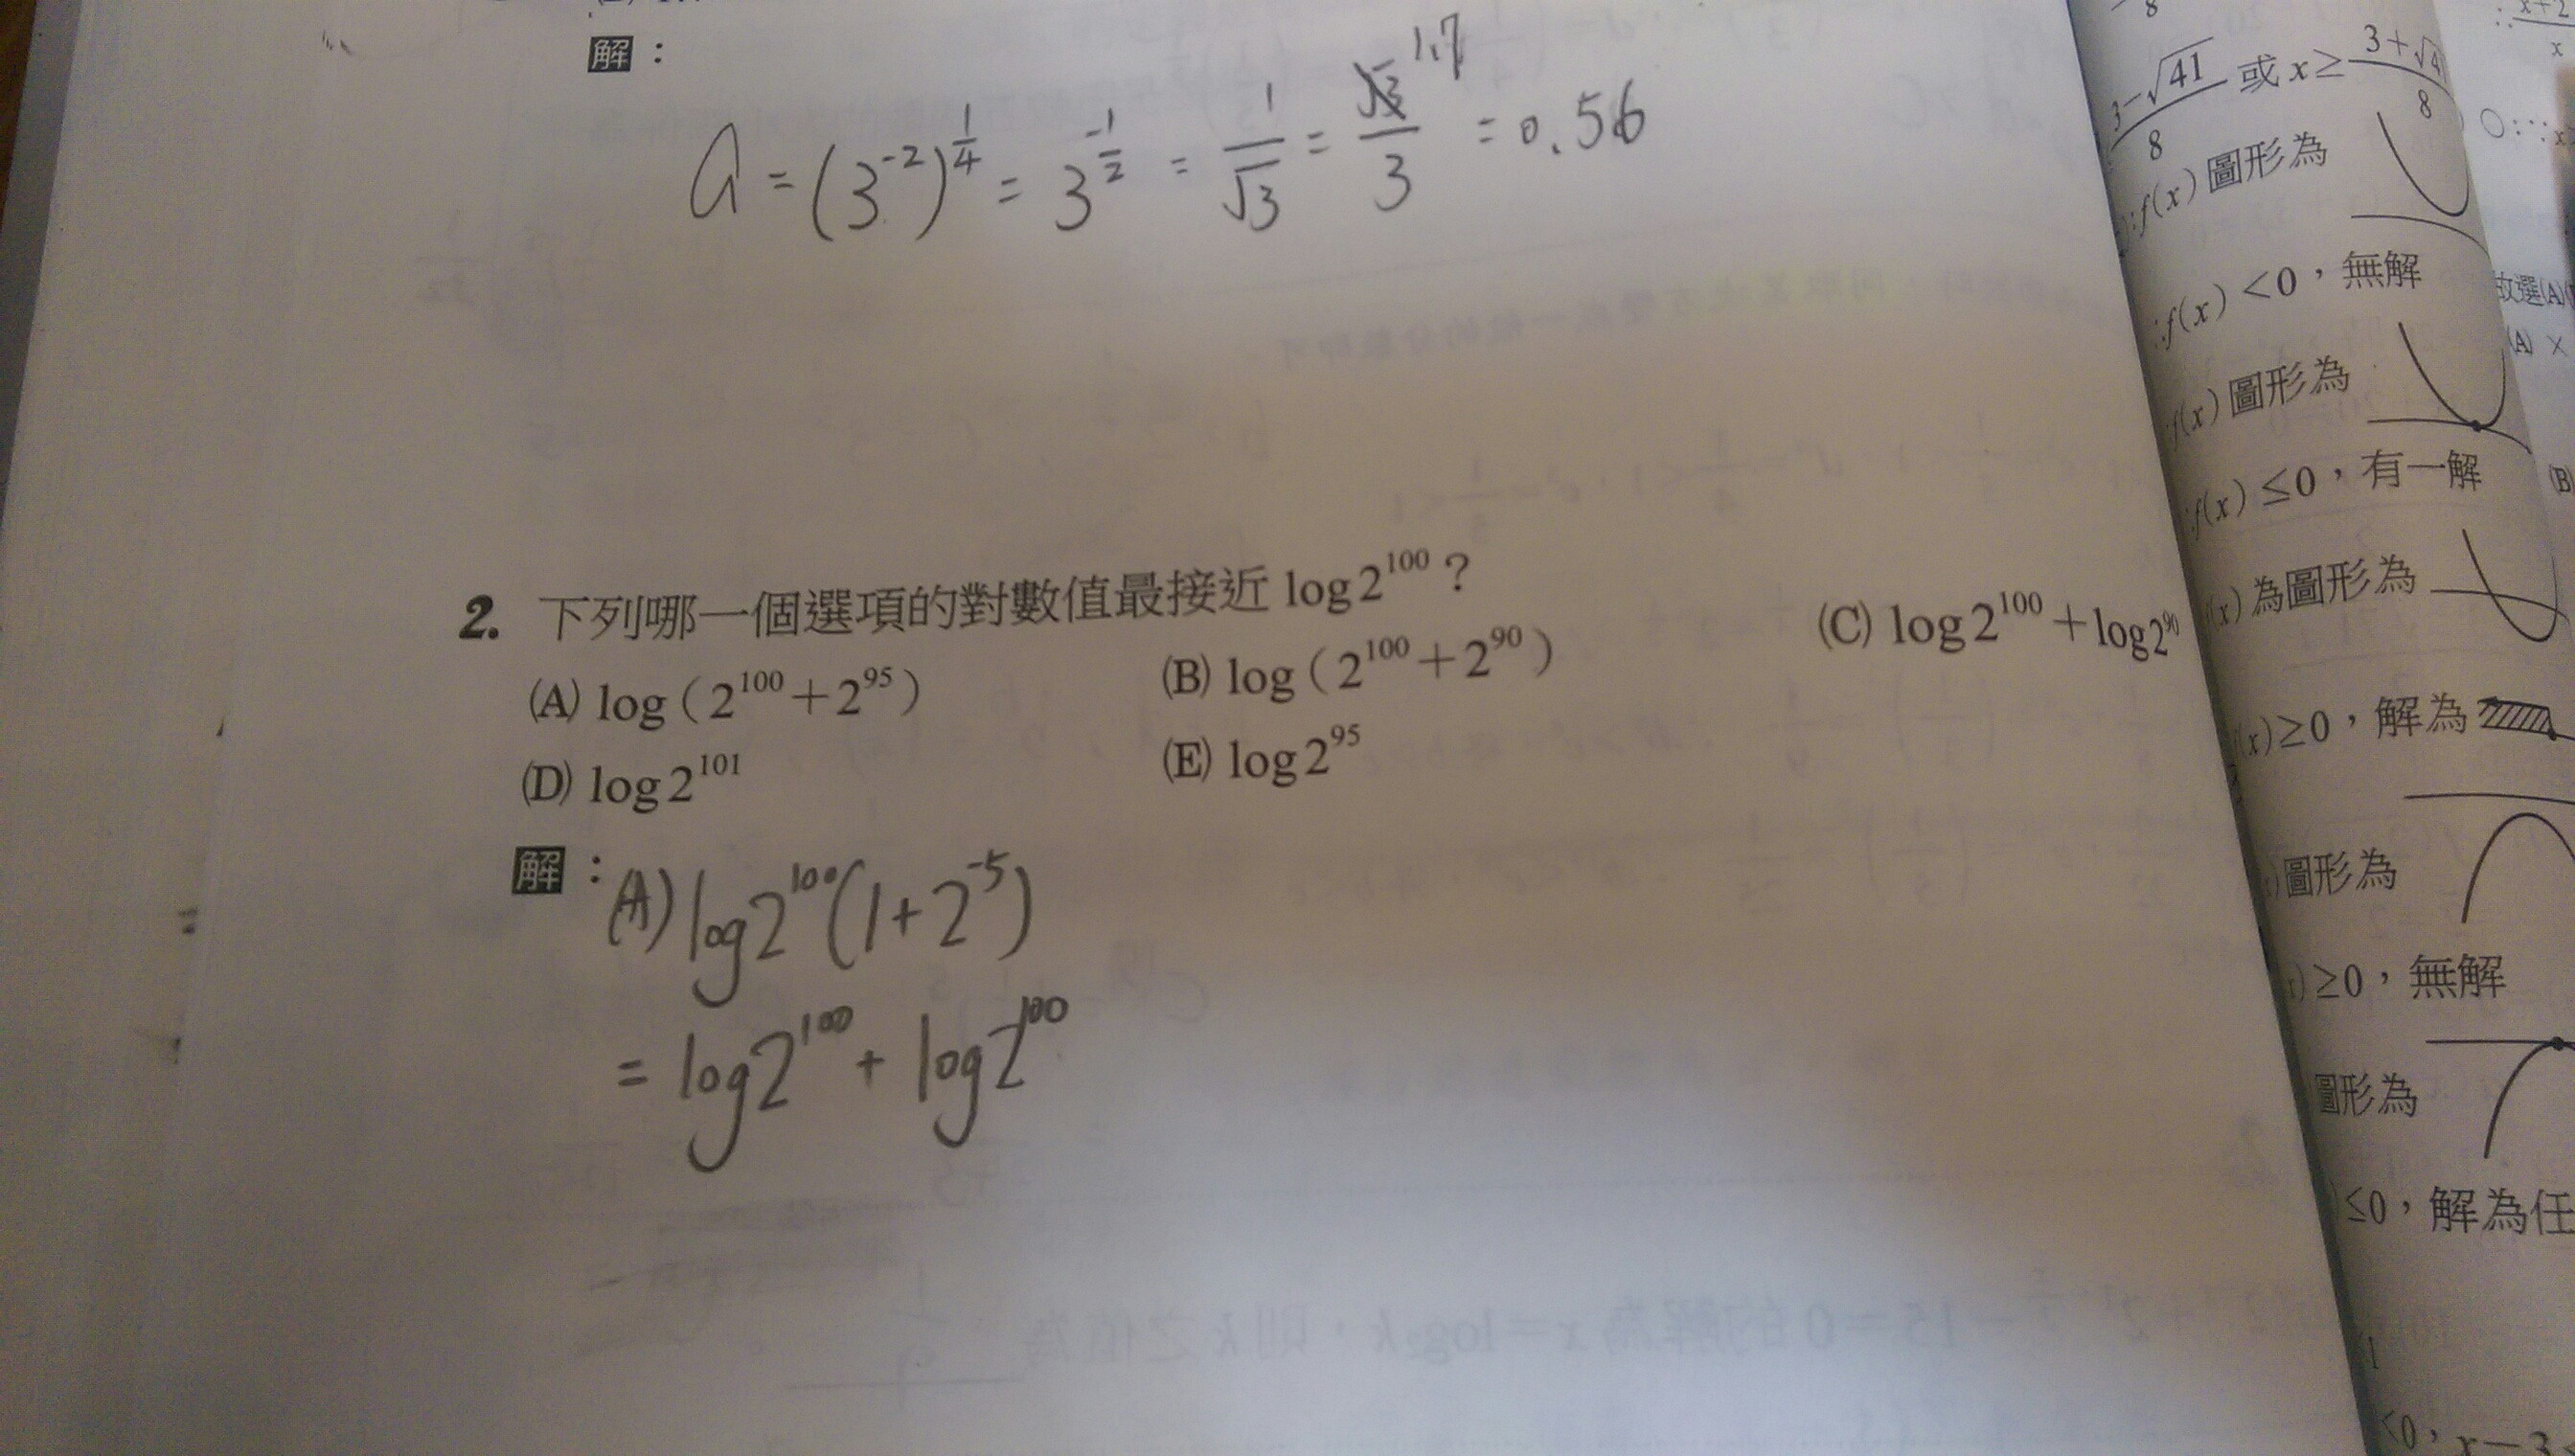 解：
a = (3^{-2})^{\frac{1}{4}} = 3^{\frac{-1}{2}} = \frac{1}{\sqrt{3}} = \frac{\sqrt{3}}{3} = 0.56
1.7
2. 下列哪一個選項的對數值最接近 log2^{100}？
(A) log（2^{100}＋2^{95}） (B) log（2^{100}＋2^{90}） (C) log2^{100}＋log2^{90}
(D) log2^{101} (E) log2^{95}
解：(A) log2^{100}(1+2^{-5})
= log2^{100} + log2^{100}
\frac{3-\sqrt{41}}{8} 或 x≥ \frac{3+\sqrt{41}}{8}
∵f(x) 圖形為
∴f(x) <0，無解
f(x) 圖形為
f(x) ≤0，有一解
(x) 為圖形為
(x)≥0，解為
)圖形為
x) ≥0，無解
圖形為
)≤0，解為任
<0，x－3
x+2
x
故選(A)
(A) ×
(B)